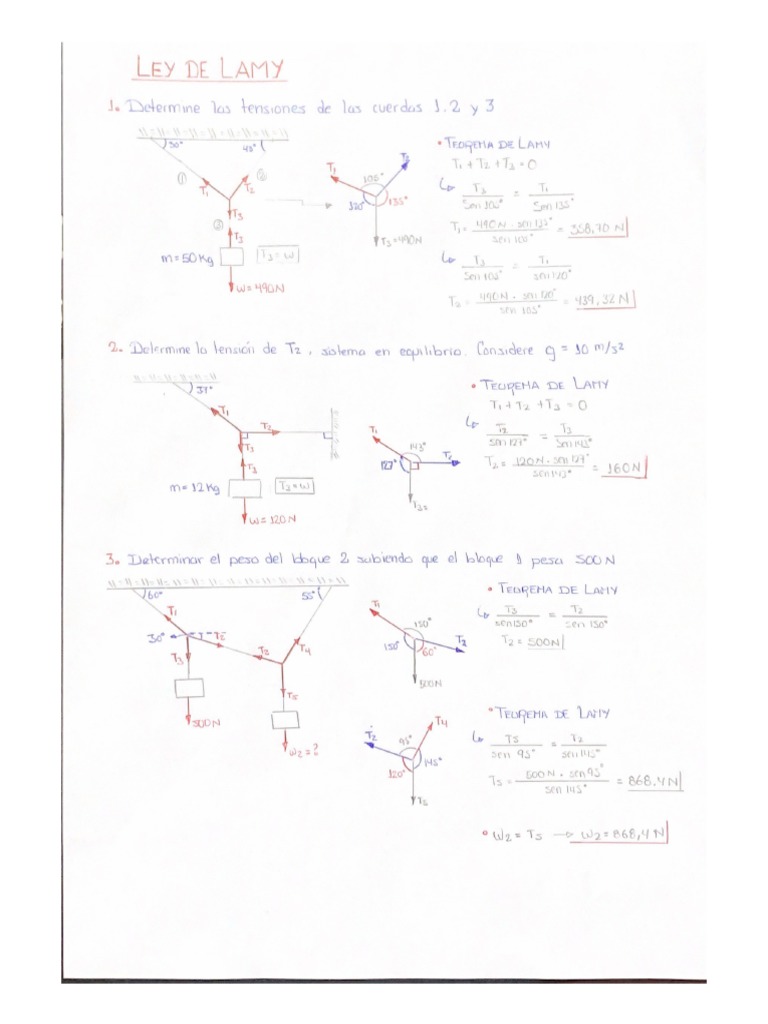 LEY DE LAMY
1. Determine las tensiones de las cuerdas 1.2 y 3
30° 45°
① ②
T1 T2
T3
③
T3
m = 50 Kg T3 = w
w = 490N
T1 T2
105°
120° 135°
T3 = 490N
• TEOREMA DE LAMY
T1 + T2 + T3 = 0
T3 / sen 105° = T1 / sen 135°
T1 = 490N · sen 135° / sen 105° = 358,70 N
T3 / sen 105° = T1 / sen 120°
T2 = 490N · sen 120° / sen 105° = 439,32 N
2. Determine la tensión de T2, sistema en equilibrio. Considere g = 10 m/s²
37°
T1 T2
T3
T3
m = 12 Kg T2 = w
w = 120 N
T1
143°
127° T2
• TEOREMA DE LAMY
T1 + T2 + T3 = 0
T2 / sen 127° = T3 / sen 143°
T2 = 120N · sen 127° / sen 143° = 160N
3. Determinar el peso del bloque 2 subiendo que el bloque 1 pesa 500N
60° 55°
T1
30°
T3 T2 T4
T5
500N
w2 = ?
T1
150°
150° 60° T2
500N
• TEOREMA DE LAMY
T3 / sen 150° = T2 / sen 150°
T2 = 500N
T2 T4
95°
120° 145°
T5
• TEOREMA DE LAMY
T5 / sen 95° = T2 / sen 145°
T5 = 500N · sen 95° / sen 145° = 868.4N
• W2 = T5 → W2 = 868,4 N